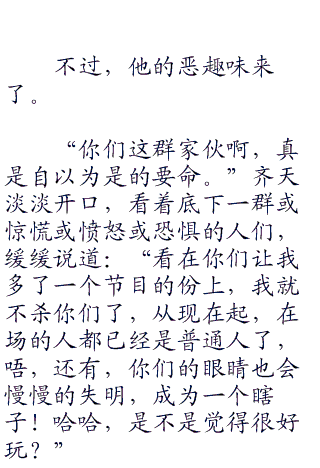 不过，他的恶趣味来
了。
“你们这群家伙啊，真
是自以为是的要命。”齐天
淡淡开口，看着底下一群或
惊慌或愤怒或恐惧的人们，
缓缓说道：“看在你们让我
多了一个节目的份上，我就
不杀你们了，从现在起，在
场的人都已经是普通人了，
唔，还有，你们的眼睛也会
慢慢的失明，成为一个瞎
子！哈哈，是不是觉得很好
玩？”